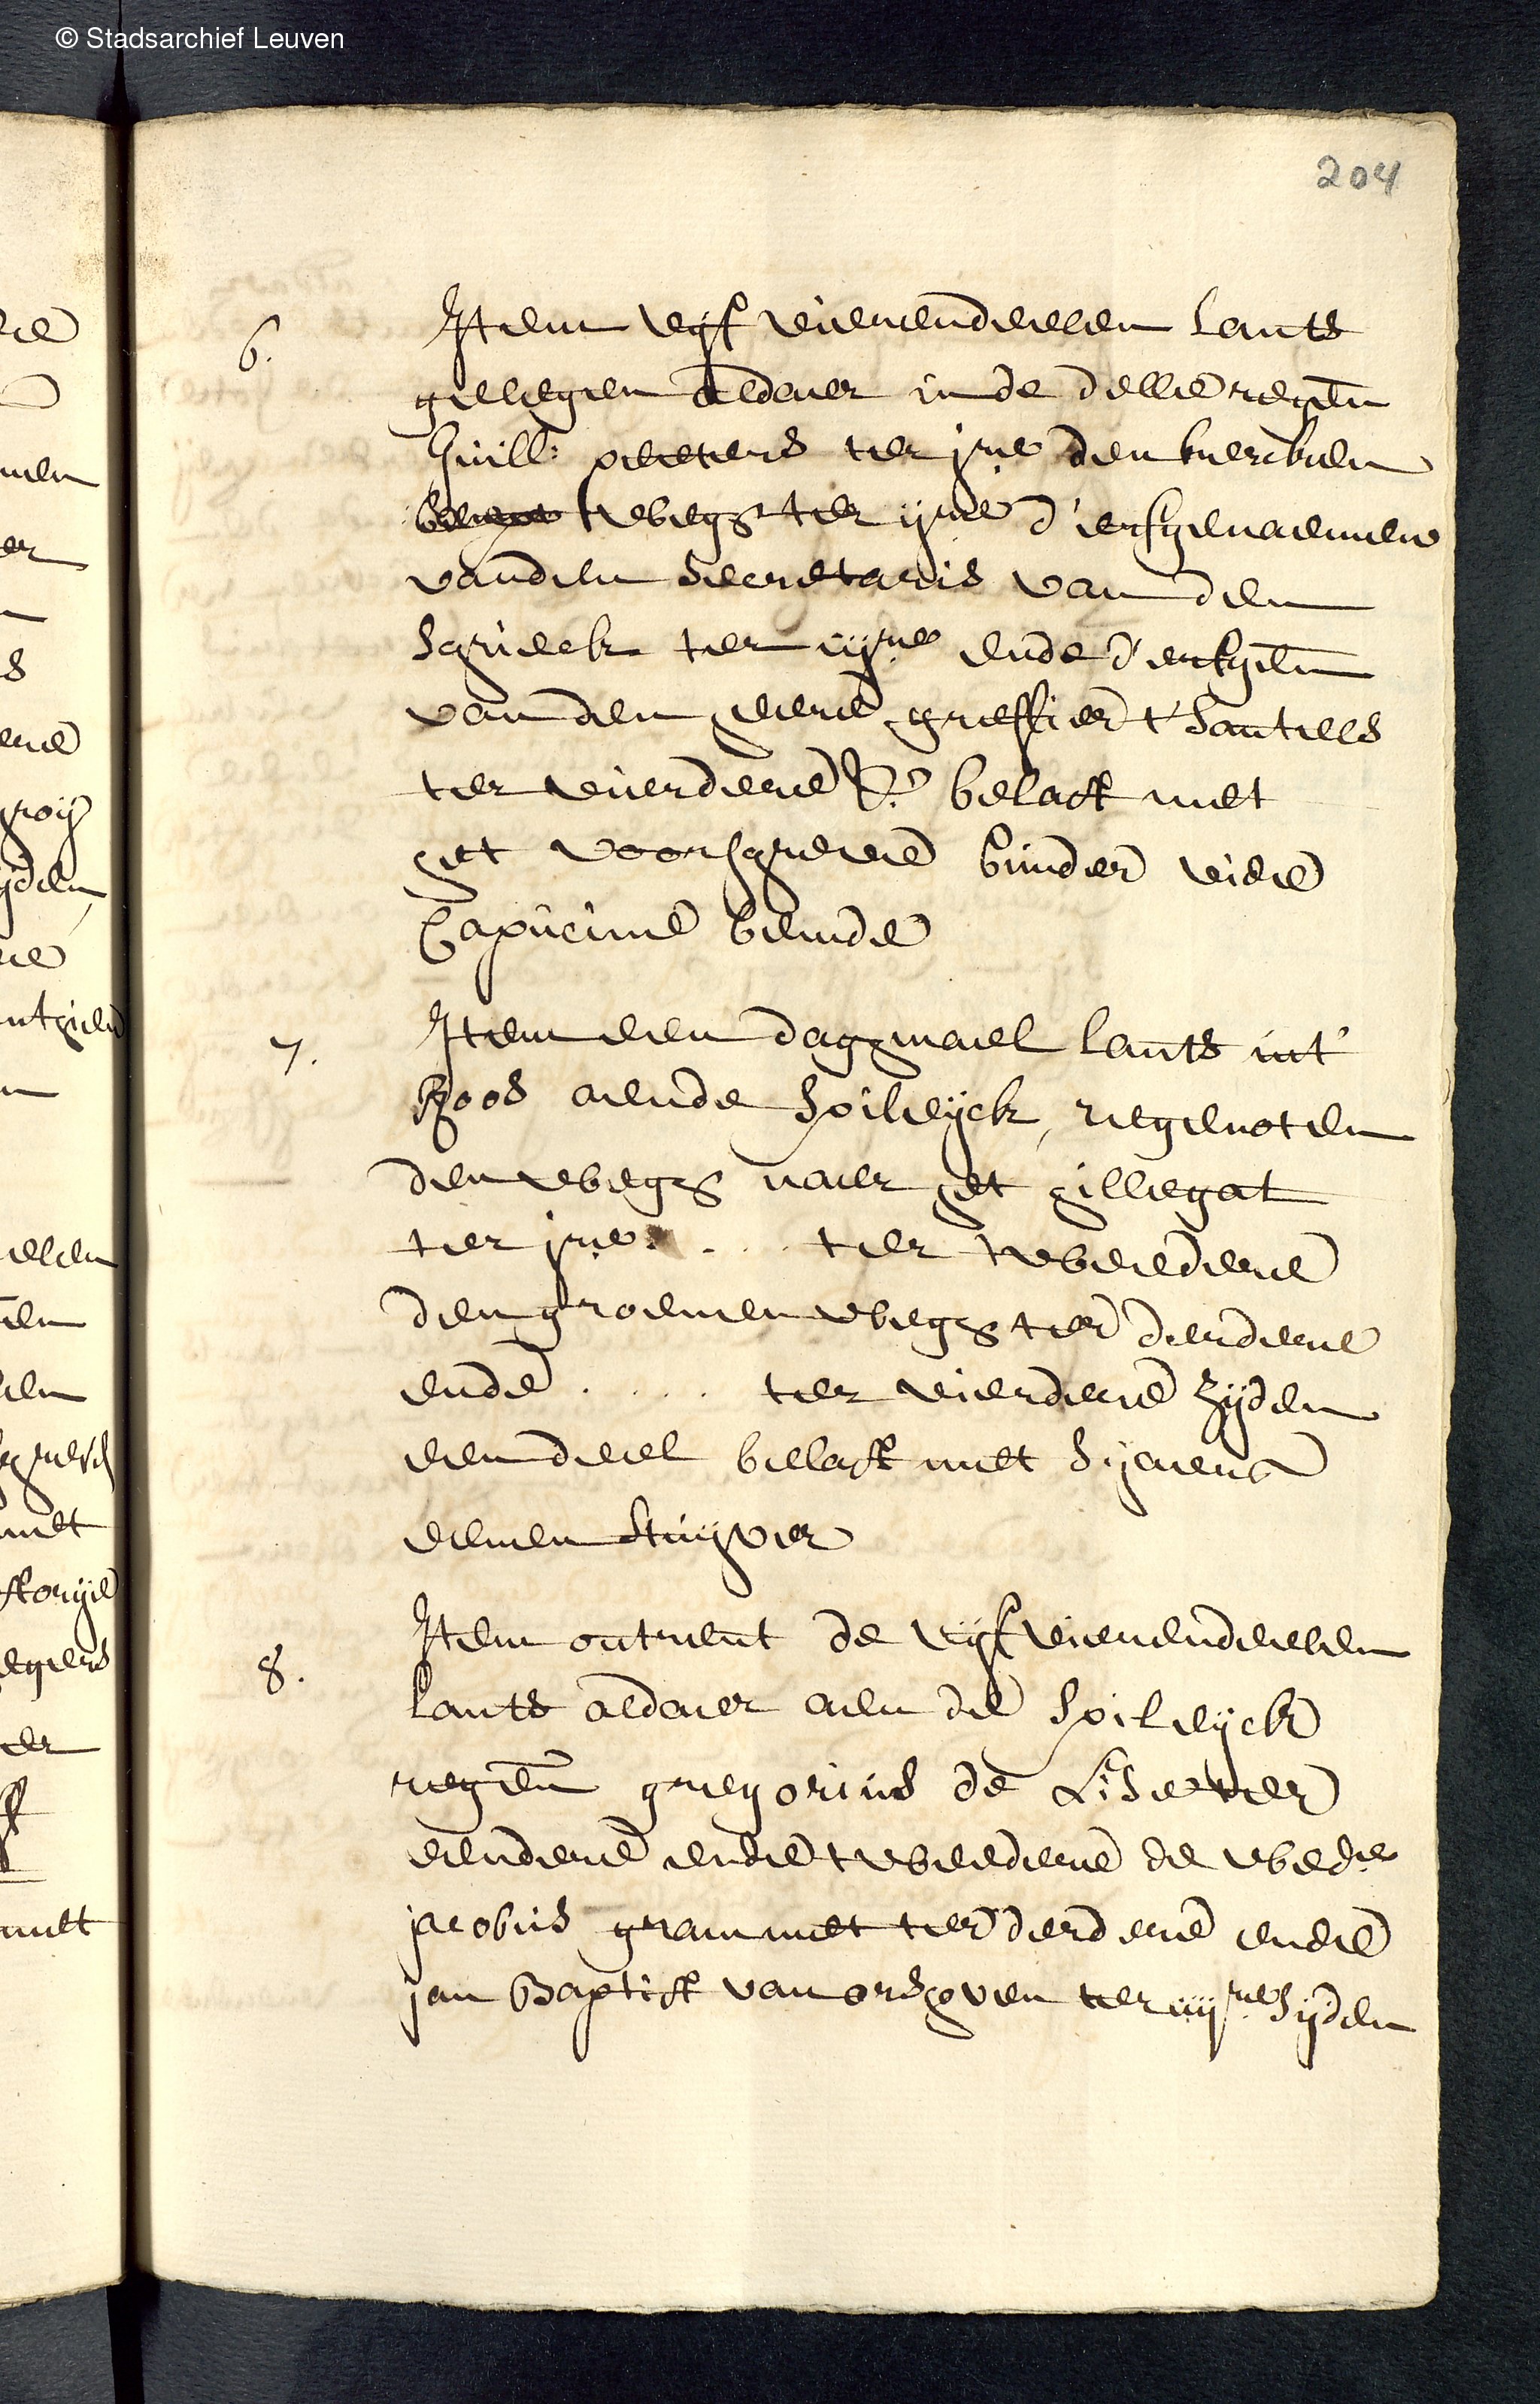 © Stadsarchief Leuven
204
6. Item vijf vierendeelen lants
gelegen aldaer inde delle regen̄
Guill: peeters ter jre den kerckelen
wegh ter ijre d'erfgenaemen
vanden Secretaris van den
Schrieck ter iijre ende d'erfgen̄
van den heere greffier t'Santels
ter vierdere Z: belast met
het voorschreve bunder vide
Capucinne beemde
7. Item een daghmael lants int'
Roos aende Spileyck, regenoten
den wegh naer het hillegat
ter jre . . . ter tweedere
den groenen wegh ter derdere
ende . . . . ter vierdere zijden
een deel belast met Sjaers
eenen stuyver
8. Item ontrent de vijf vierendeelen
lants aldaer aen de Spileyck
regen̄ gregorius de ter
eendere ende tweedere de wede
jacobus grammet ter derdere ende
jan Baptist van orshoven ter iiijre sijden